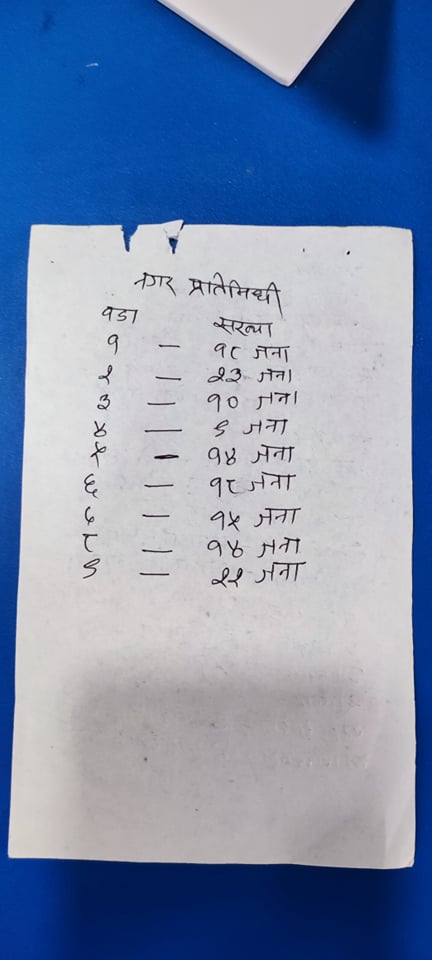 नगर प्रतिनिधी
वडा संख्या
१ — १८ जना
२ — २३ जना
३ — १० जना
४ — ९ जना
५ — १४ जना
६ — १८ जना
७ — १५ जना
८ — १४ जना
९ — २२ जना